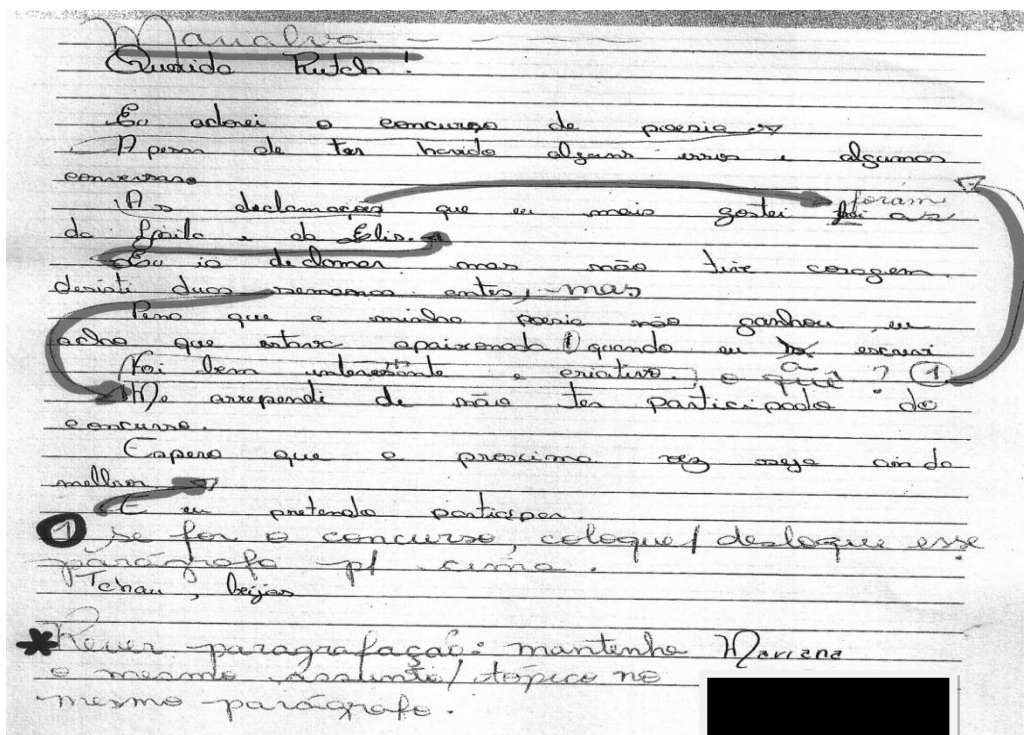 Marialva
Querida Rutch!
Eu adorei o concurso de poesia
A pesar de ter havido alguns erros e algumas
conversas
As declamações que eu mais gostei foi as foram
da Gsila e da Elis.
Eu ia declamar mas não tive coragem.
desisti duas semanas antes, mas
Pena que a minha poesia não ganhou, eu
acho que estava apaixonada quando eu escrevi
a
Foi bem interessante e criativo. o quê? 1
Me arrependi de não ter participado do
concurso.
Espero que a proxima vez seja ainda
melhor
E eu pretendo participar
1 Se for o concurso, coloque/desloque esse
parágrafo p/ cima.
Tchau, beijos
* Rever paragrafação: mantenha Mariana
o mesmo assunto/tópico no
mesmo parágrafo.